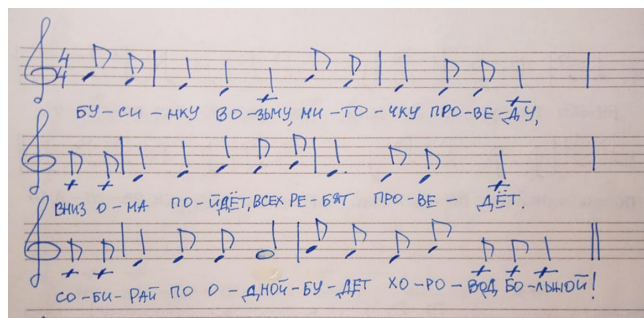 4
4
БУ-СИ-НКУ ВО-ЗЬМУ, НИ-ТО-ЧКУ ПРО-ВЕ-ДУ,
ВНИЗ О-НА ПО-ЙДЁТ, ВСЕХ РЕ-БЯТ ПРО-ВЕ-ДЁТ.
СО-БИ-РАЙ ПО О-ДНОЙ-БУ-ДЕТ ХО-РО-ВОД БО-ЛЬШОЙ!